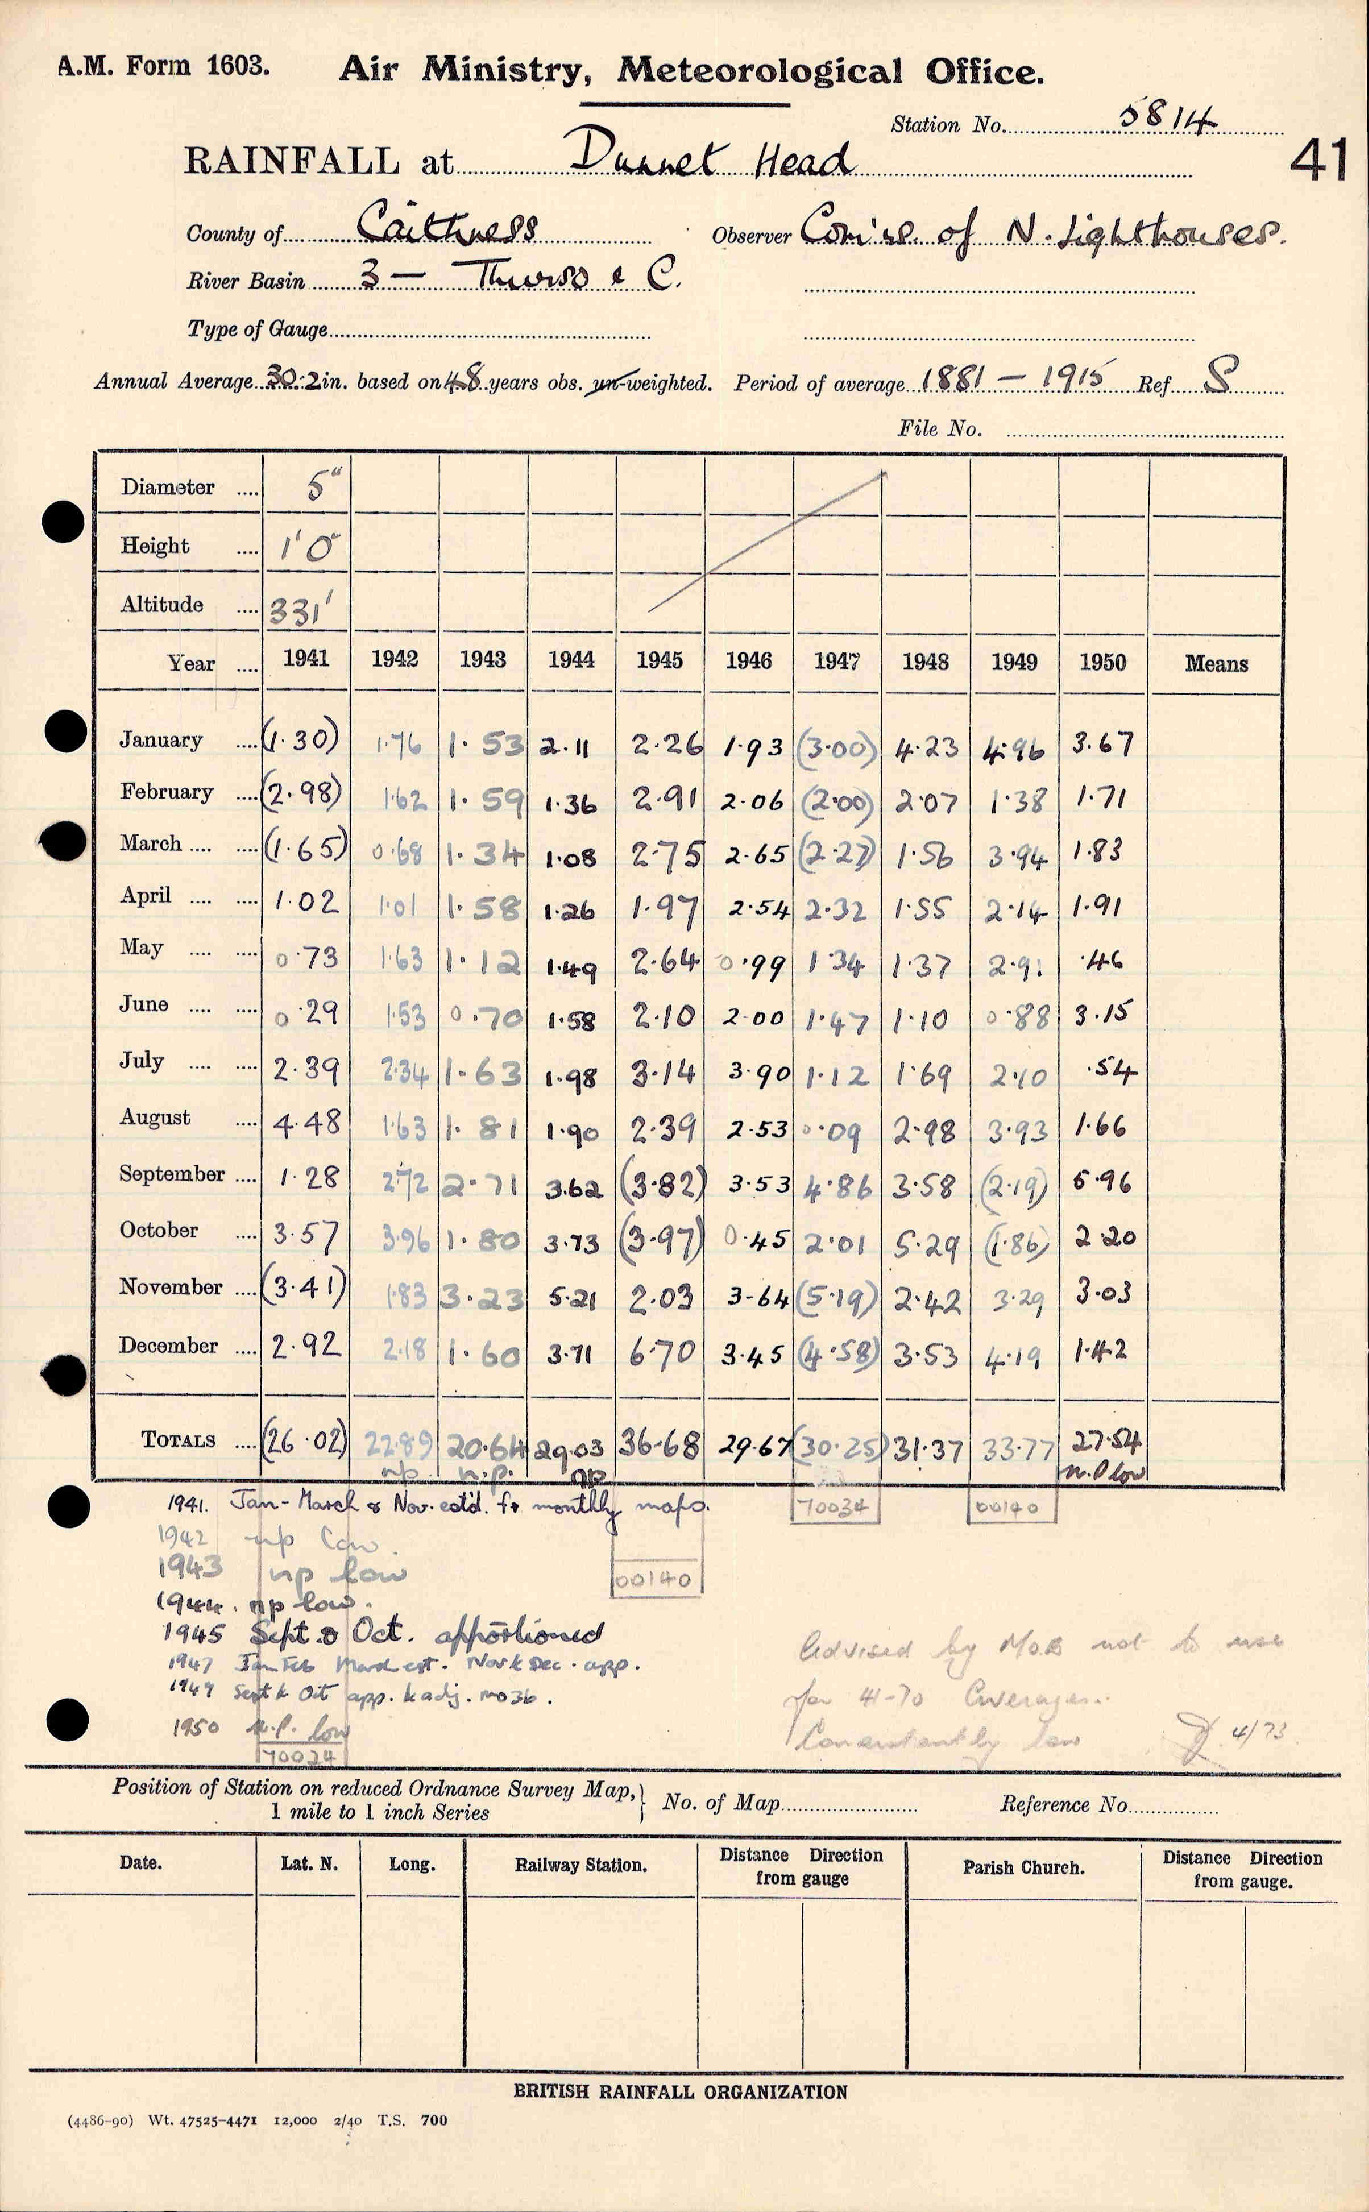 A.M. Form 1603. Air Ministry, Meteorological Office.
Station No. 5814
41
RAINFALL at Dunnet Head
County of Caithness Observer Com'rs. of N. Lighthouses.
River Basin 3 — Thurso & C.
Type of Gauge
Annual Average 30.2 in. based on 48 years obs. un-weighted. Period of average 1881 — 1915 Ref. S
File No.
Diameter .... 5"
Height .... 1'0"
Altitude .... 331'
Year .... 1941 1942 1943 1944 1945 1946 1947 1948 1949 1950 Means
January .... (1.30) 1.76 1.53 2.11 2.26 1.93 (3.00) 4.23 4.96 3.67
February .... (2.98) 1.62 1.59 1.36 2.91 2.06 (2.00) 2.07 1.38 1.71
March .... .... (1.65) 0.68 1.34 1.08 2.75 2.65 (2.27) 1.56 3.94 1.83
April .... .... 1.02 1.01 1.58 1.26 1.97 2.54 2.32 1.55 2.14 1.91
May .... .... 0.73 1.63 1.12 1.49 2.64 0.99 1.34 1.37 2.91 .46
June .... .... 0.29 1.53 0.70 1.58 2.10 2.00 1.47 1.10 0.88 3.15
July .... .... 2.39 2.34 1.63 1.98 3.14 3.90 1.12 1.69 2.10 .54
August .... 4.48 1.63 1.81 1.90 2.39 2.53 0.09 2.98 3.93 1.66
September .... 1.28 2.72 2.71 3.62 (3.82) 3.53 4.86 3.58 (2.19) 5.96
October .... 3.57 3.96 1.80 3.73 (3.97) 0.45 2.01 5.29 (1.86) 2.20
November .... (3.41) 1.83 3.23 5.21 2.03 3.64 (5.19) 2.42 3.29 3.03
December .... 2.92 2.18 1.60 3.71 6.70 3.45 (4.58) 3.53 4.19 1.42
TOTALS .... (26.02) 22.89 20.64 29.03 36.68 29.67 (30.25) 31.37 33.77 27.54
np n.p. np n.p low
1941. Jan - March & Nov. est'd. fr. monthly maps. 70034 00140
1942 np low.
1943 np low
00140
1944. np low.
1945 Sept. & Oct. apportioned
1947 Jan Feb March est. Nov & Dec. app.
1949 Sept & Oct app. & adj. mo3b.
1950 n.p. low
70024
Advised by Mo.8 not to use
for 41-70 Averages.
Consistently low 4/73
Position of Station on reduced Ordnance Survey Map, 1 mile to 1 inch Series } No. of Map Reference No.
Date. Lat. N. Long. Railway Station. Distance from gauge Direction Parish Church. Distance Direction from gauge.
BRITISH RAINFALL ORGANIZATION
(4486-90) Wt. 47525-4471 12,000 2/40 T.S. 700